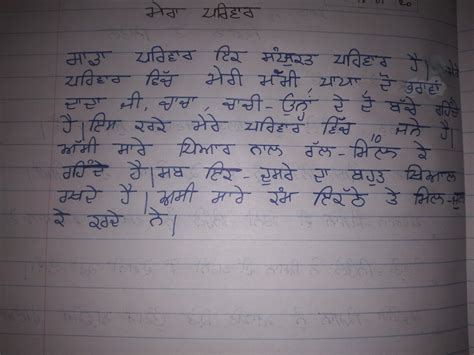 ਮੇਰਾ ਪਰਿਵਾਰ
ਸਾਡਾ ਪਰਿਵਾਰ ਇਕ ਸੰਯੁਕਤ ਪਰਿਵਾਰ ਹੈ।
ਪਰਿਵਾਰ ਵਿੱਚ ਮੇਰੀ ਮੰਮੀ, ਪਾਪਾ, ਦੋ ਭਰਾਵਾਂ
ਦਾਦਾ ਜੀ, ਚਾਚਾ, ਚਾਚੀ - ਉਨ੍ਹਾਂ ਦੇ ਦੋ ਬੱਚੇ ਰਹਿੰਦੇ
ਹੈ। ਇਸ ਕਰਕੇ ਮੇਰੇ ਪਰਿਵਾਰ ਵਿੱਚ 10 ਜਨੇ ਹੈ।
ਅੱਸੀ ਸਾਰੇ ਪਿਆਰ ਨਾਲ ਰੱਲ - ਮਿਲ ਕੇ
ਰਹਿੰਦੇ ਹੈ। ਸਬ ਇਕ - ਦੂਸਰੇ ਦਾ ਬਹੁਤ ਖਿਆਲ
ਰਖਦੇ ਹੈ। ਅਸੀ ਸਾਰੇ ਕੰਮ ਇਕੱਠੇ ਤੇ ਮਿਲ - ਜੁਲ
ਕੇ ਕਰਦੇ ਨੇ।